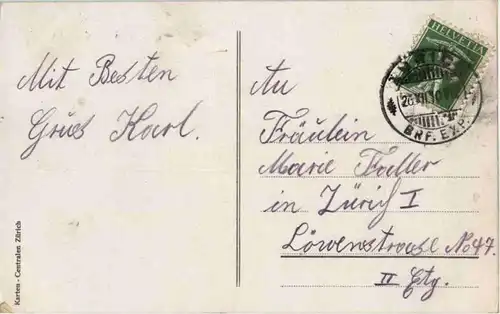 Mit Besten
Gruss Karl.
An
Fräulein
Marie Faller
in Zürich I
Löwenstrasse No 47.
II Etg.
HELVETIA
BRF. EXP.
Karten-Centralen Zürich